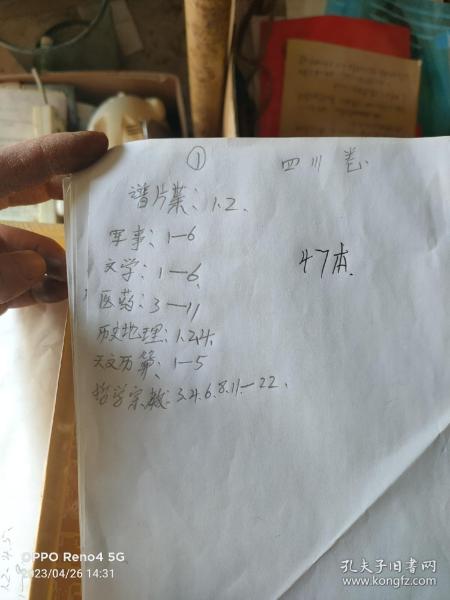 ①
四川卷
谱片叶：1.2.
军事：1—6
文学：1—6.
医药：3—11
历史地理：1.2.4.
天文历算：1—5
哲学宗教：3.4.6.8.11—22.
47本.
OPPO Reno4 5G
2023/04/26 14:31
孔夫子旧书网
www.kongfz.com